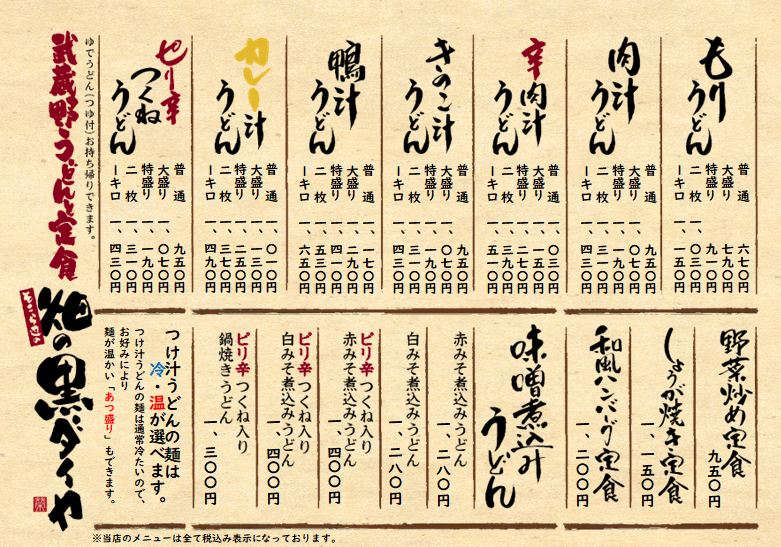 もりうどん
普通 六七〇円
大盛り 七九〇円
特盛り 九一〇円
二枚 一、〇三〇円
一キロ 一、一五〇円
肉汁うどん
普通 九五〇円
大盛り 一、〇七〇円
特盛り 一、一九〇円
二枚 一、三一〇円
一キロ 一、四三〇円
辛肉汁うどん
普通 一、〇三〇円
大盛り 一、一五〇円
特盛り 一、二七〇円
二枚 一、三九〇円
一キロ 一、五一〇円
きのこ汁うどん
普通 九五〇円
大盛り 一、〇七〇円
特盛り 一、一九〇円
二枚 一、三一〇円
一キロ 一、四三〇円
鴨汁うどん
普通 一、一七〇円
大盛り 一、二九〇円
特盛り 一、四一〇円
二枚 一、五三〇円
一キロ 一、六五〇円
カレー汁うどん
普通 一、〇一〇円
大盛り 一、一三〇円
特盛り 一、二五〇円
二枚 一、三七〇円
一キロ 一、四九〇円
ピリ辛つくねうどん
普通 九五〇円
大盛り 一、〇七〇円
特盛り 一、一九〇円
二枚 一、三一〇円
一キロ 一、四三〇円
ゆでうどん(つゆ付)お持ち帰りできます。
武蔵野うどんと定食
野菜炒め定食 九五〇円
しょうが焼き定食 一、一五〇円
和風ハンバーグ定食 一、二〇〇円
味噌煮込みうどん
赤みそ煮込みうどん 一、二八〇円
白みそ煮込みうどん 一、二八〇円
ピリ辛つくね入り
赤みそ煮込みうどん 一、四〇〇円
ピリ辛つくね入り
白みそ煮込みうどん 一、四〇〇円
ピリ辛つくね入り
鍋焼きうどん 一、三〇〇円
つけ汁うどんの麺は
冷・温が選べます。
つけ汁うどんの麺は通常冷たいので、
お好みにより
麺が温かい「あつ盛り」もできます。
畑の黒ダイヤ
※当店のメニューは全て税込み表示になっております。